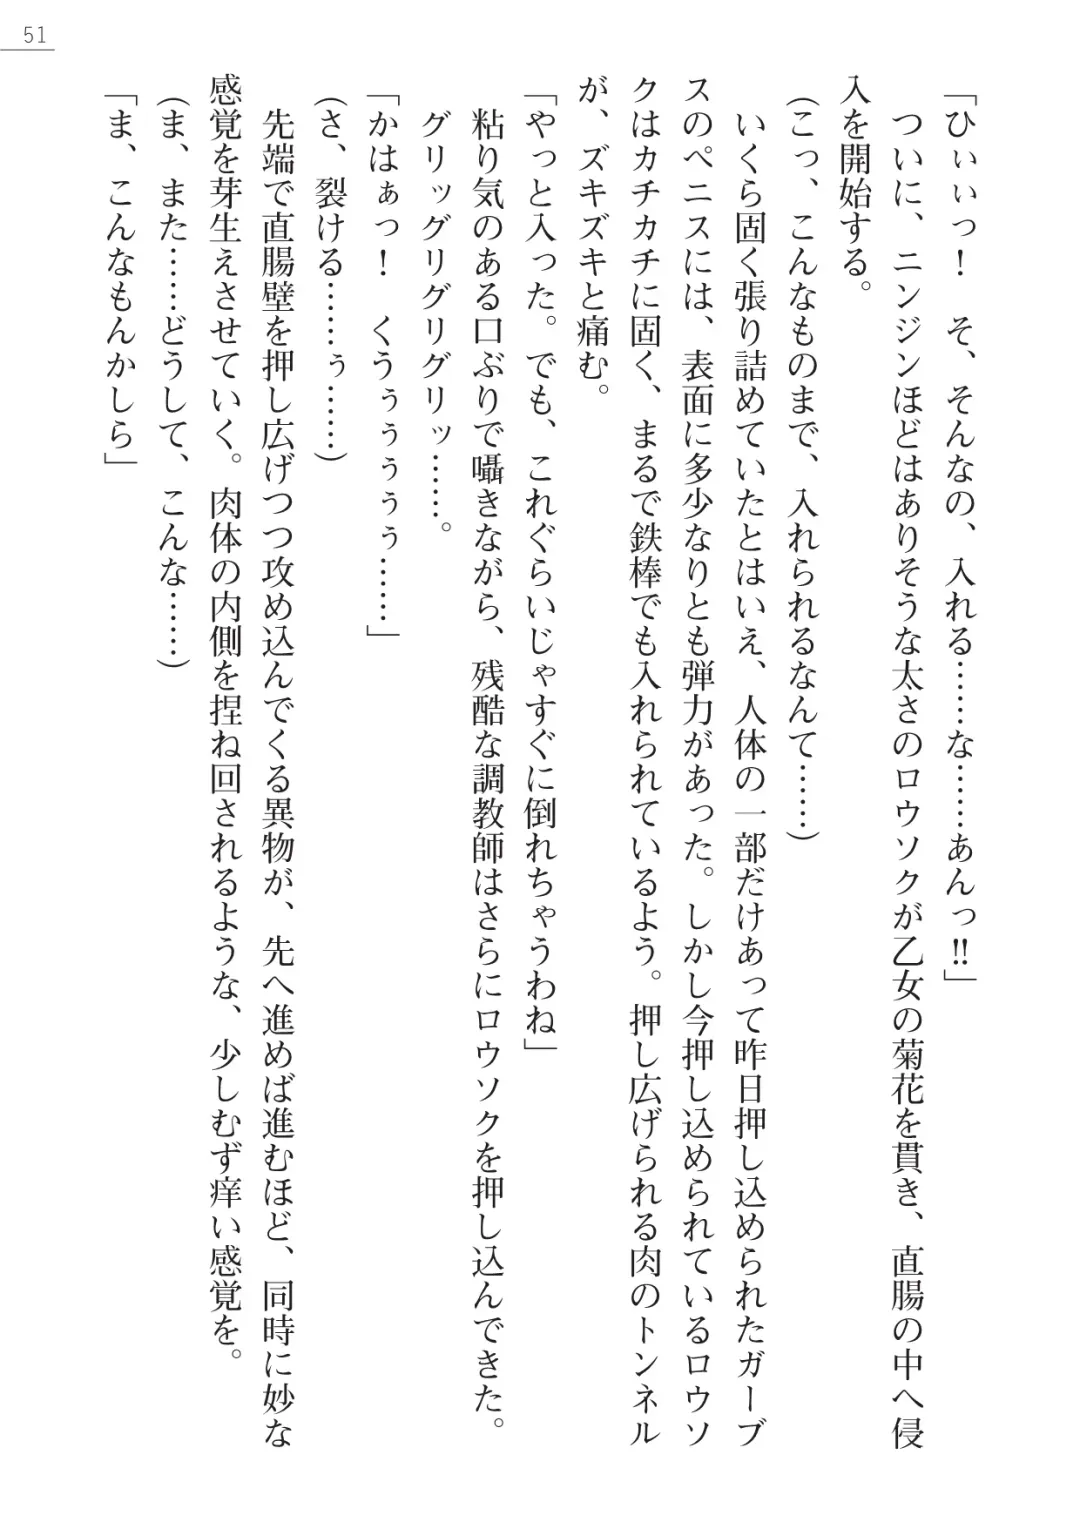 51
「ひぃぃっ！　そ、そんなの、入れる……な……あんっ‼」
　ついに、ニンジンほどはありそうな太さのロウソクが乙女の菊花を貫き、直腸の中へ侵
入を開始する。
（こっ、こんなものまで、入れられるなんて……）
　いくら固く張り詰めていたとはいえ、人体の一部だけあって昨日押し込められたガーブ
スのペニスには、表面に多少なりとも弾力があった。しかし今押し込められているロウソ
クはカチカチに固く、まるで鉄棒でも入れられているよう。押し広げられる肉のトンネル
が、ズキズキと痛む。
「やっと入った。でも、これぐらいじゃすぐに倒れちゃうわね」
　粘り気のある口ぶりで囁きながら、残酷な調教師はさらにロウソクを押し込んできた。
　グリッグリグリグリッ……。
「かはぁっ！　くうぅぅぅぅ……」
（さ、裂ける……ぅ……）
　先端で直腸壁を押し広げつつ攻め込んでくる異物が、先へ進めば進むほど、同時に妙な
感覚を芽生えさせていく。肉体の内側を捏ね回されるような、少しむず痒い感覚を。
（ま、また……どうして、こんな……）
「ま、こんなもんかしら」